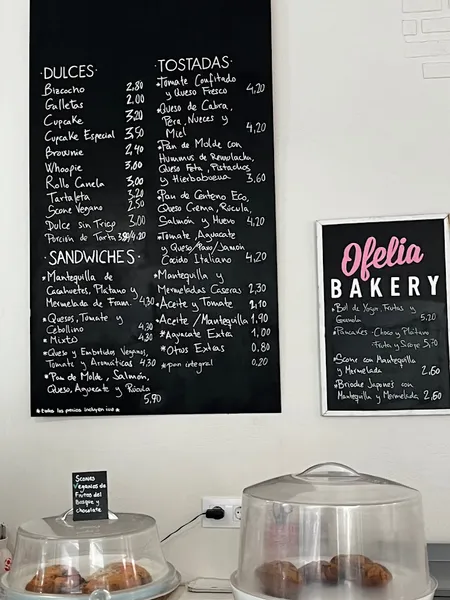 ·DULCES·
Bizcocho 2,80
Galletas 2,00
Cupcake 3,20
Cupcake Especial 3,50
Brownie 2,40
Whoopie 3,00
Rollo Canela 3,00
Tartaleta 3,20
Scone Vegano 2,50
Dulce sin Trigo 3,00
Porción de Tarta 3,80/4,20
SANDWICHES·
*Mantequilla de
Cacahuetes, Plátano y
Mermelada de Fram. 4,30
*Quesos, Tomate y
Cebollino 4,30
*Mixto 4,30
*Queso y Embutidos Veganos,
Tomate y Aromáticas 4,30
*Pan de Molde, Salmón,
Queso, Aguacate y Rúcula
5,90
*todos los precios incluyen iva*
·TOSTADAS·
*Tomate Confitado
y Queso Fresco 4,20
*Queso de Cabra,
Pera, Nueces y
Miel 4,20
*Pan de Molde con
Hummus de Remolacha,
Queso Feta, Pistachos
y Hierbabuena 3,60
*Pan de Centeno Eco,
Queso Crema, Rúcula,
Salmón y Huevo 4,20
*Tomate, Aguacate
y Queso/Pavo/Jamón
Cocido Italiano 4,20
*Mantequilla y
Mermeladas Caseras 2,30
*Aceite y Tomate 2,10
*Aceite/Mantequilla 1,90
*Aguacate Extra 1,00
*Otros Extras 0,80
*pan integral 0,20
Ofelia
BAKERY
*Bol de Yogur, Frutas y
Granola 5,20
*Pancakes -Choco y Plátano
-Fruta y Sirope 5,70
*Scone con Mantequilla
y Mermelada 2,60
*Brioche Japonés con
Mantequilla y Mermelada 2,60
Scones
Veganos de
Frutos del
Bosque y
chocolate